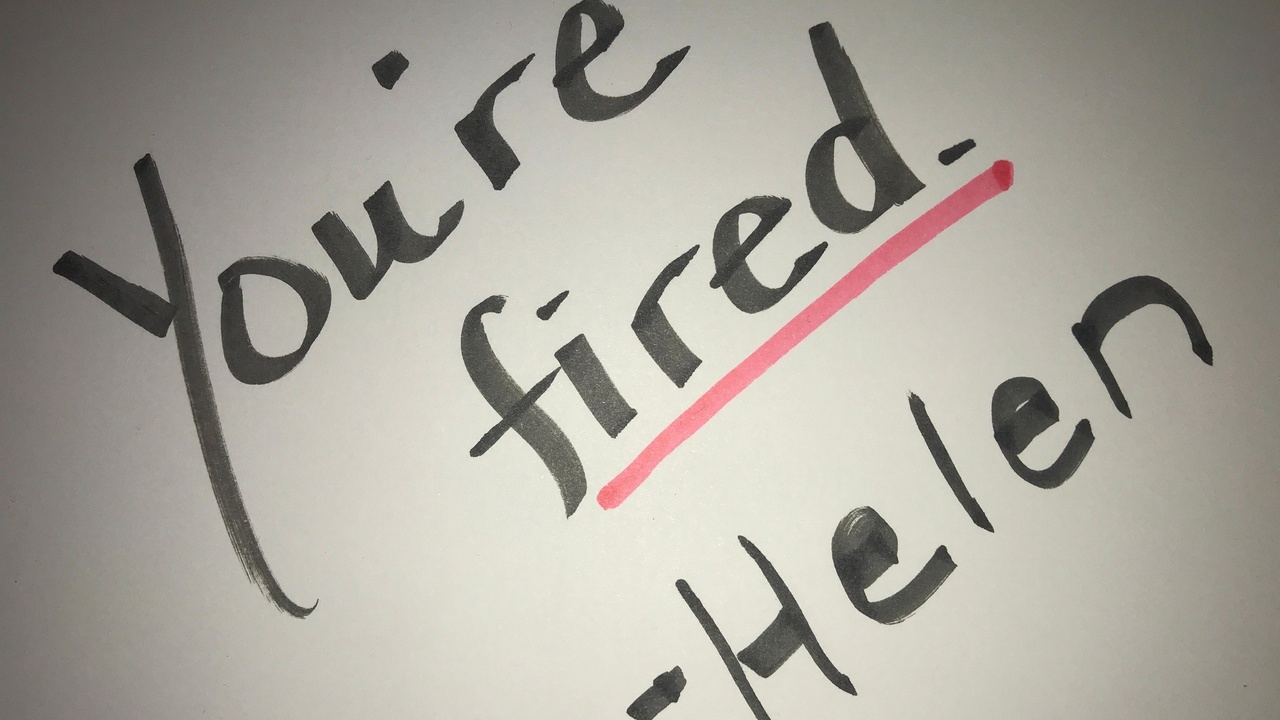 You're
fired.
-Helen